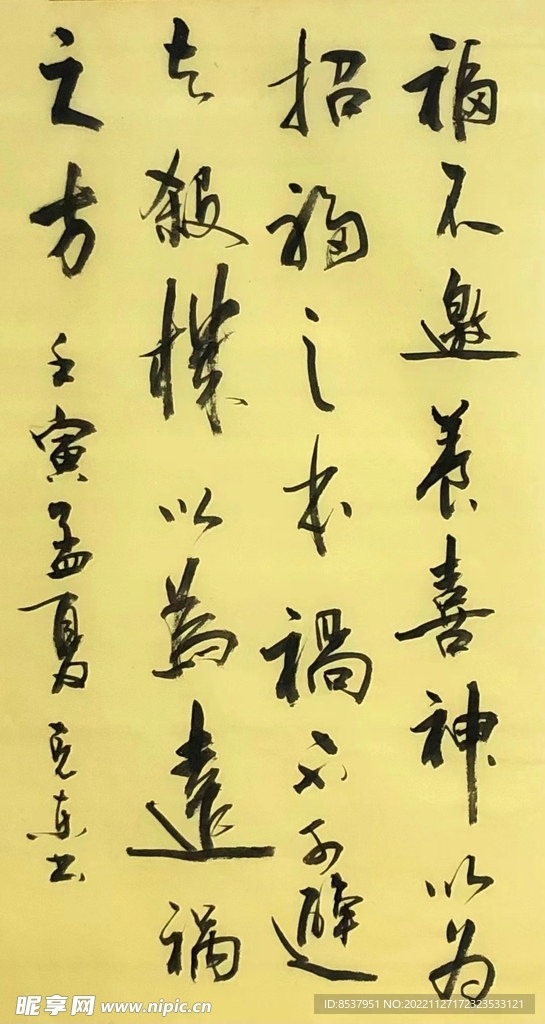 福不邀養喜神以为
招福之本禍不可避
去殺機以為遠禍
之方 壬寅孟夏 克東书
昵享网 www.nipic.cn
ID:8537951 NO:20221127172323533121